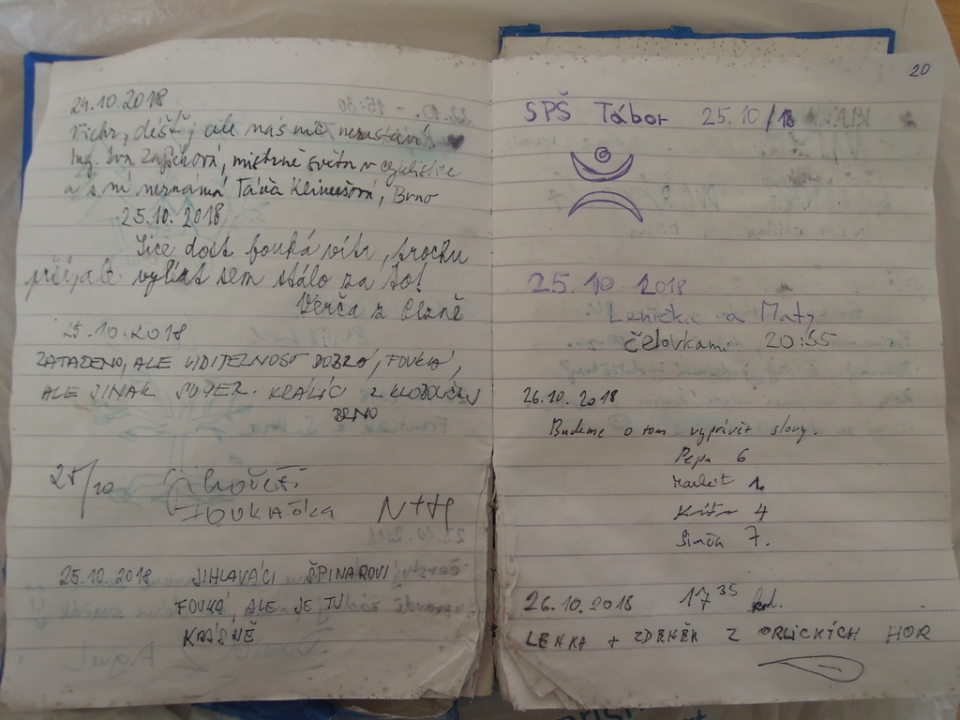 24.10.2018
Vichr, déšť, ale nás nic nezastaví
Ing. Iva, mistryně světa v cyklistice
a s ní neznámá Táňa, Brno
25.10.2018
Sice dost fouká vítr, trochu
prší, ale vylézt sem stálo za to!
Verča z Plzně
25.10.2018
ZATAŽENO, ALE VIDITELNOST DOBRÁ, FOUKÁ,
ALE JINAK SUPER. KRÁLÍCI Z KLOBOUČEK
BRNO
25/10
FOUKAČKA N++H
25.10.2018 JIHLAVÁCI ŠPINAROVI
FOUKÁ, ALE JE TU
KRÁSNĚ
20
SPŠ Tábor 25.10/18
25.10 2018
Lenička a Maty
čelovkami 20:55
26.10.2018
Budeme o tom vyprávět slovy.
Pepa 6
Markét 1.
4
Simča 7.
26.10.2018 17 35 hod.
LENKA + ZDENĚK Z ORLICKÝCH HOR